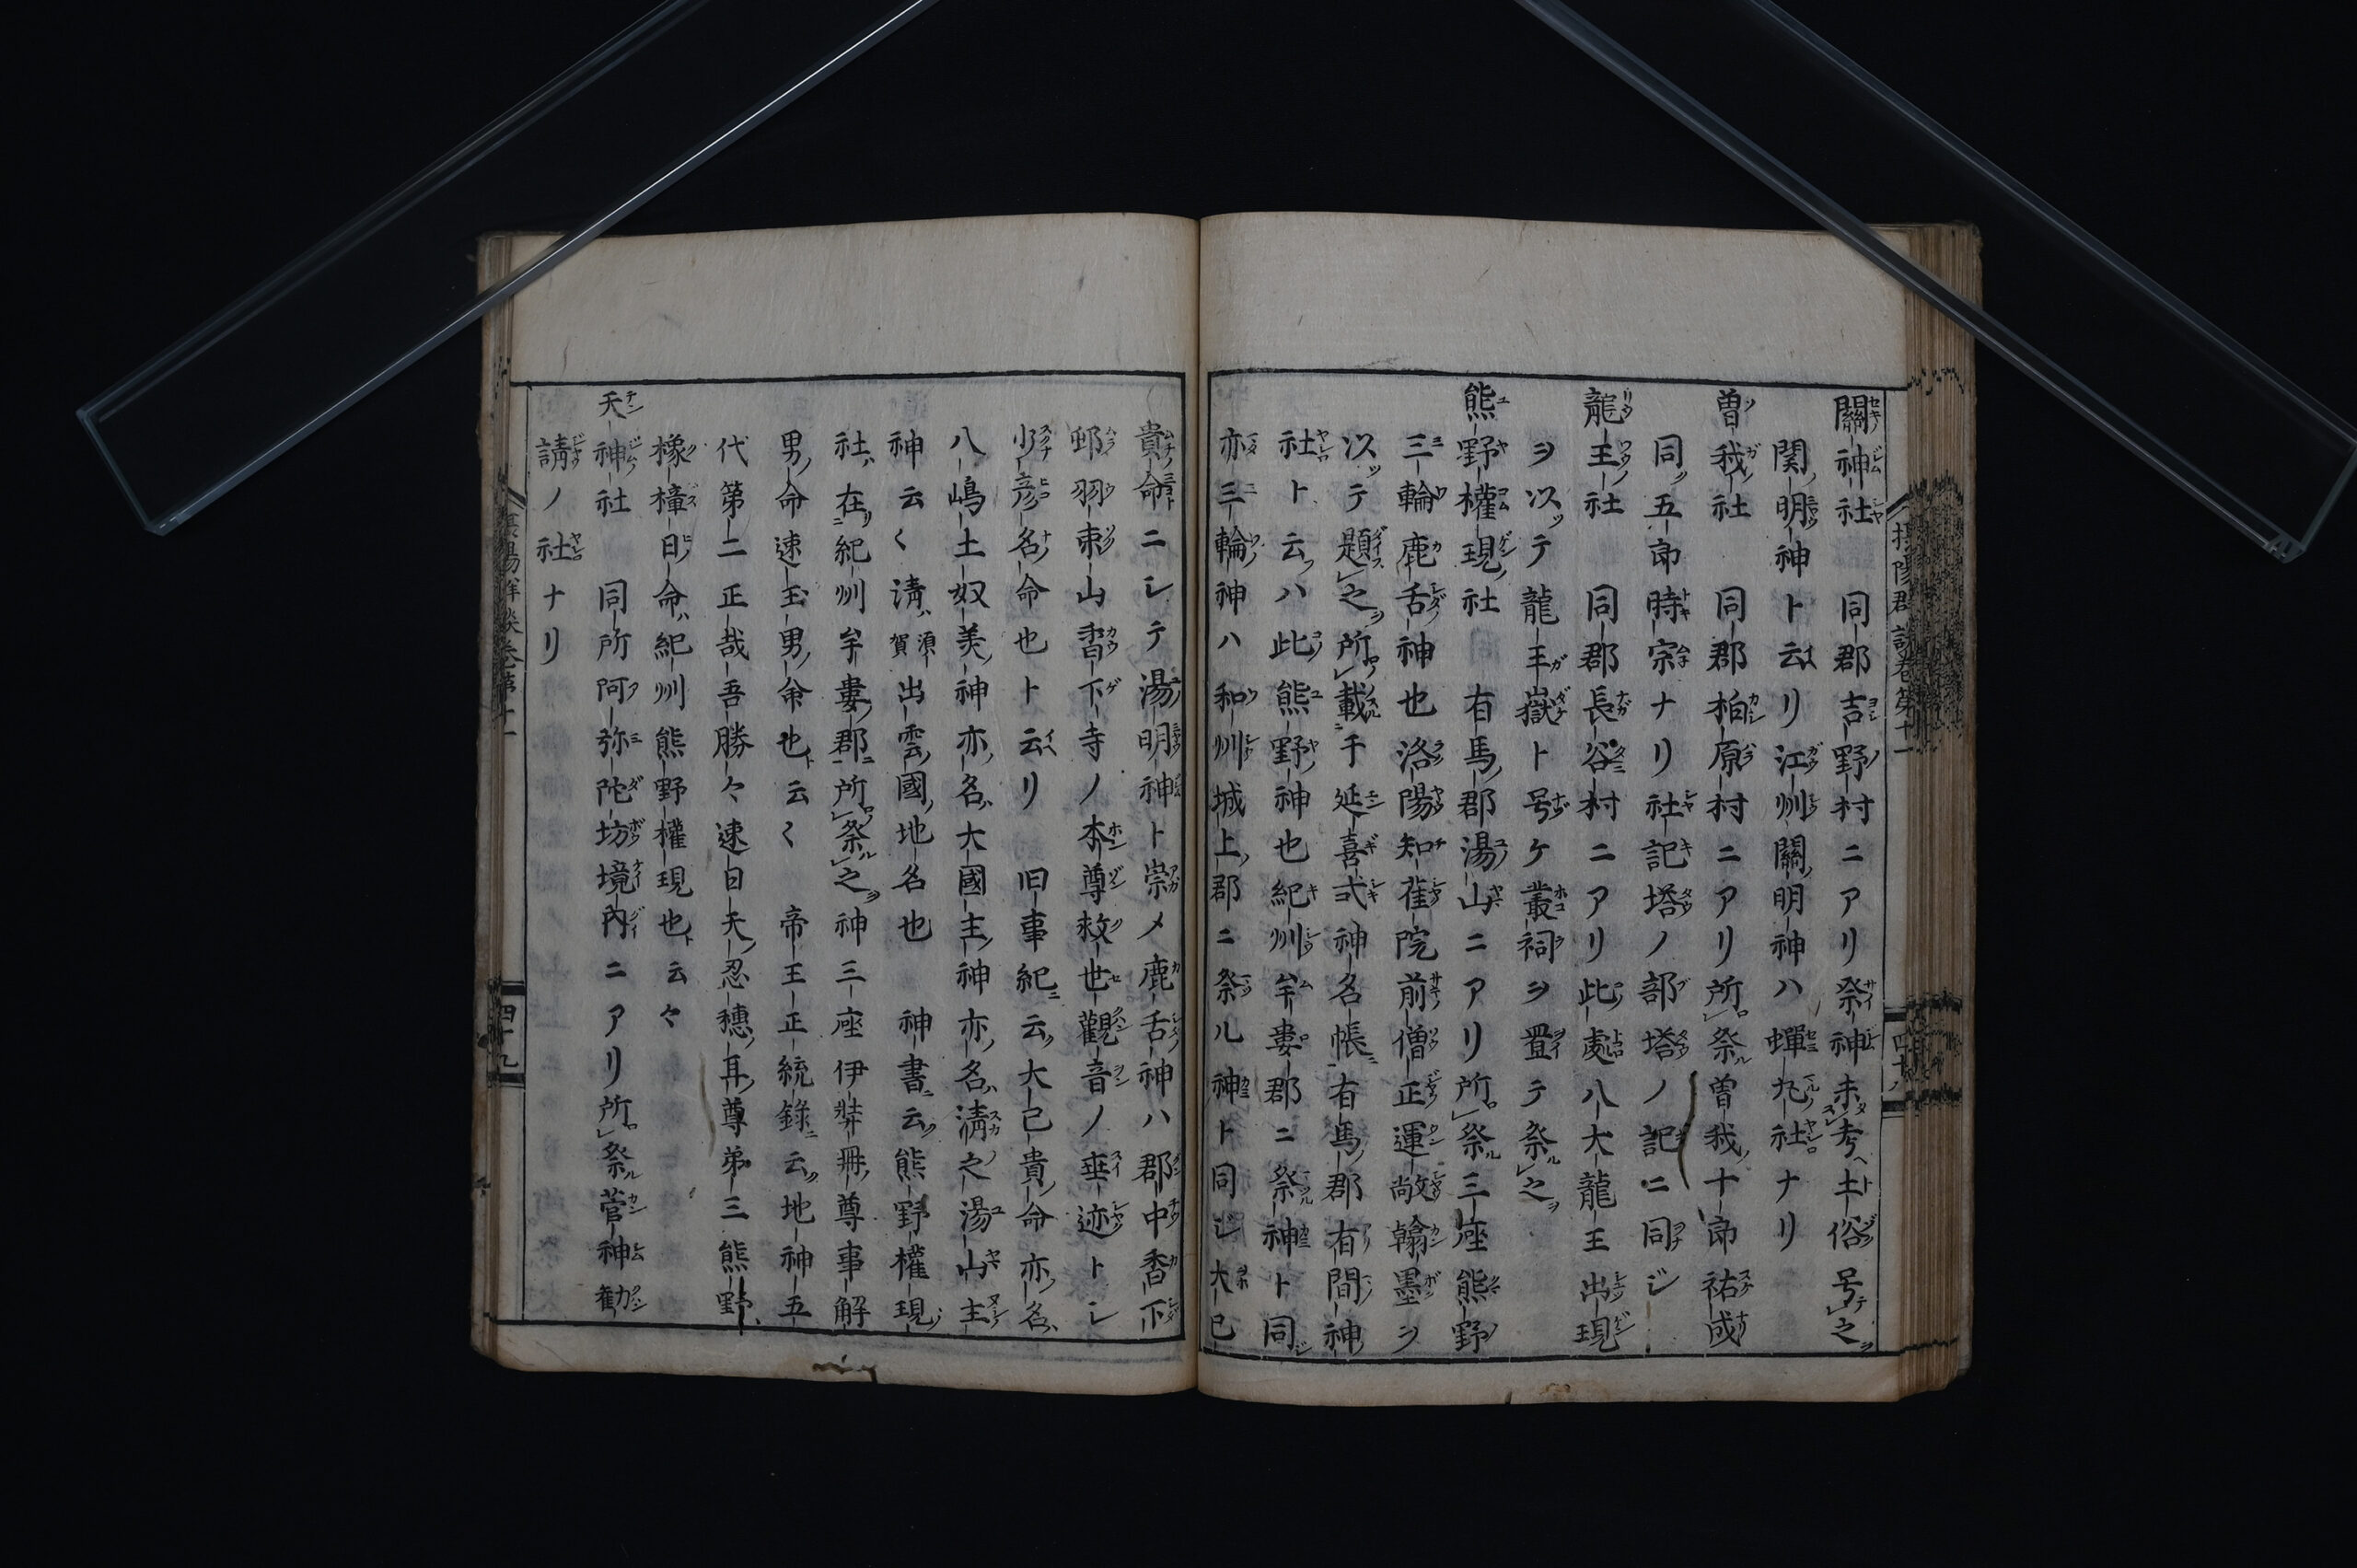 關神社 同郡吉野村ニアリ祭神未考土俗号之
関明神ト云リ江州關明神ハ蟬丸社ナリ
曽我社 同郡柏原村ニアリ所祭曽我十郎祐成
同五郎時宗ナリ社記塔ノ部塔ノ記ニ同シ
龍王社 同郡長谷村ニアリ此處八大龍王出現
ヲ以テ龍王嶽ト号ケ叢祠ヲ置テ祭之
熊野權現社 有馬郡湯山ニアリ所祭三座熊野
三輪鹿舌神也洛陽知雀院前僧正運敞翰墨ヲ
以テ題之所載于延喜式神名帳有馬郡有間神
社ト云ハ此熊野神也紀州牟婁郡ニ祭神ト同
亦三輪神ハ和州城上郡ニ祭ル神ト同じ大已
貴命ニシテ湯明神ト崇メ鹿舌神ハ郡中香下
邨羽束山香下寺ノ本尊救世觀音ノ垂迹トシ
少彦名命也ト云リ 旧事紀云大己貴命亦名
八嶋土奴美神亦名大國主神亦名淸之湯山主
神云く淸賀須出雲國地名也 神書云熊野權現
社在紀州牟婁郡所祭之神三座伊弉冊尊事解
男命速玉男命也云く 帝王正統錄云地神五
代第二正哉吾勝々速日天忍穗耳尊弟三熊野
櫲樟日命紀州熊野權現也云々
天神社 同所阿弥陀坊境內ニアリ所祭菅神勧
請ノ社ナリ
摂陽群談巻第十一
四十九